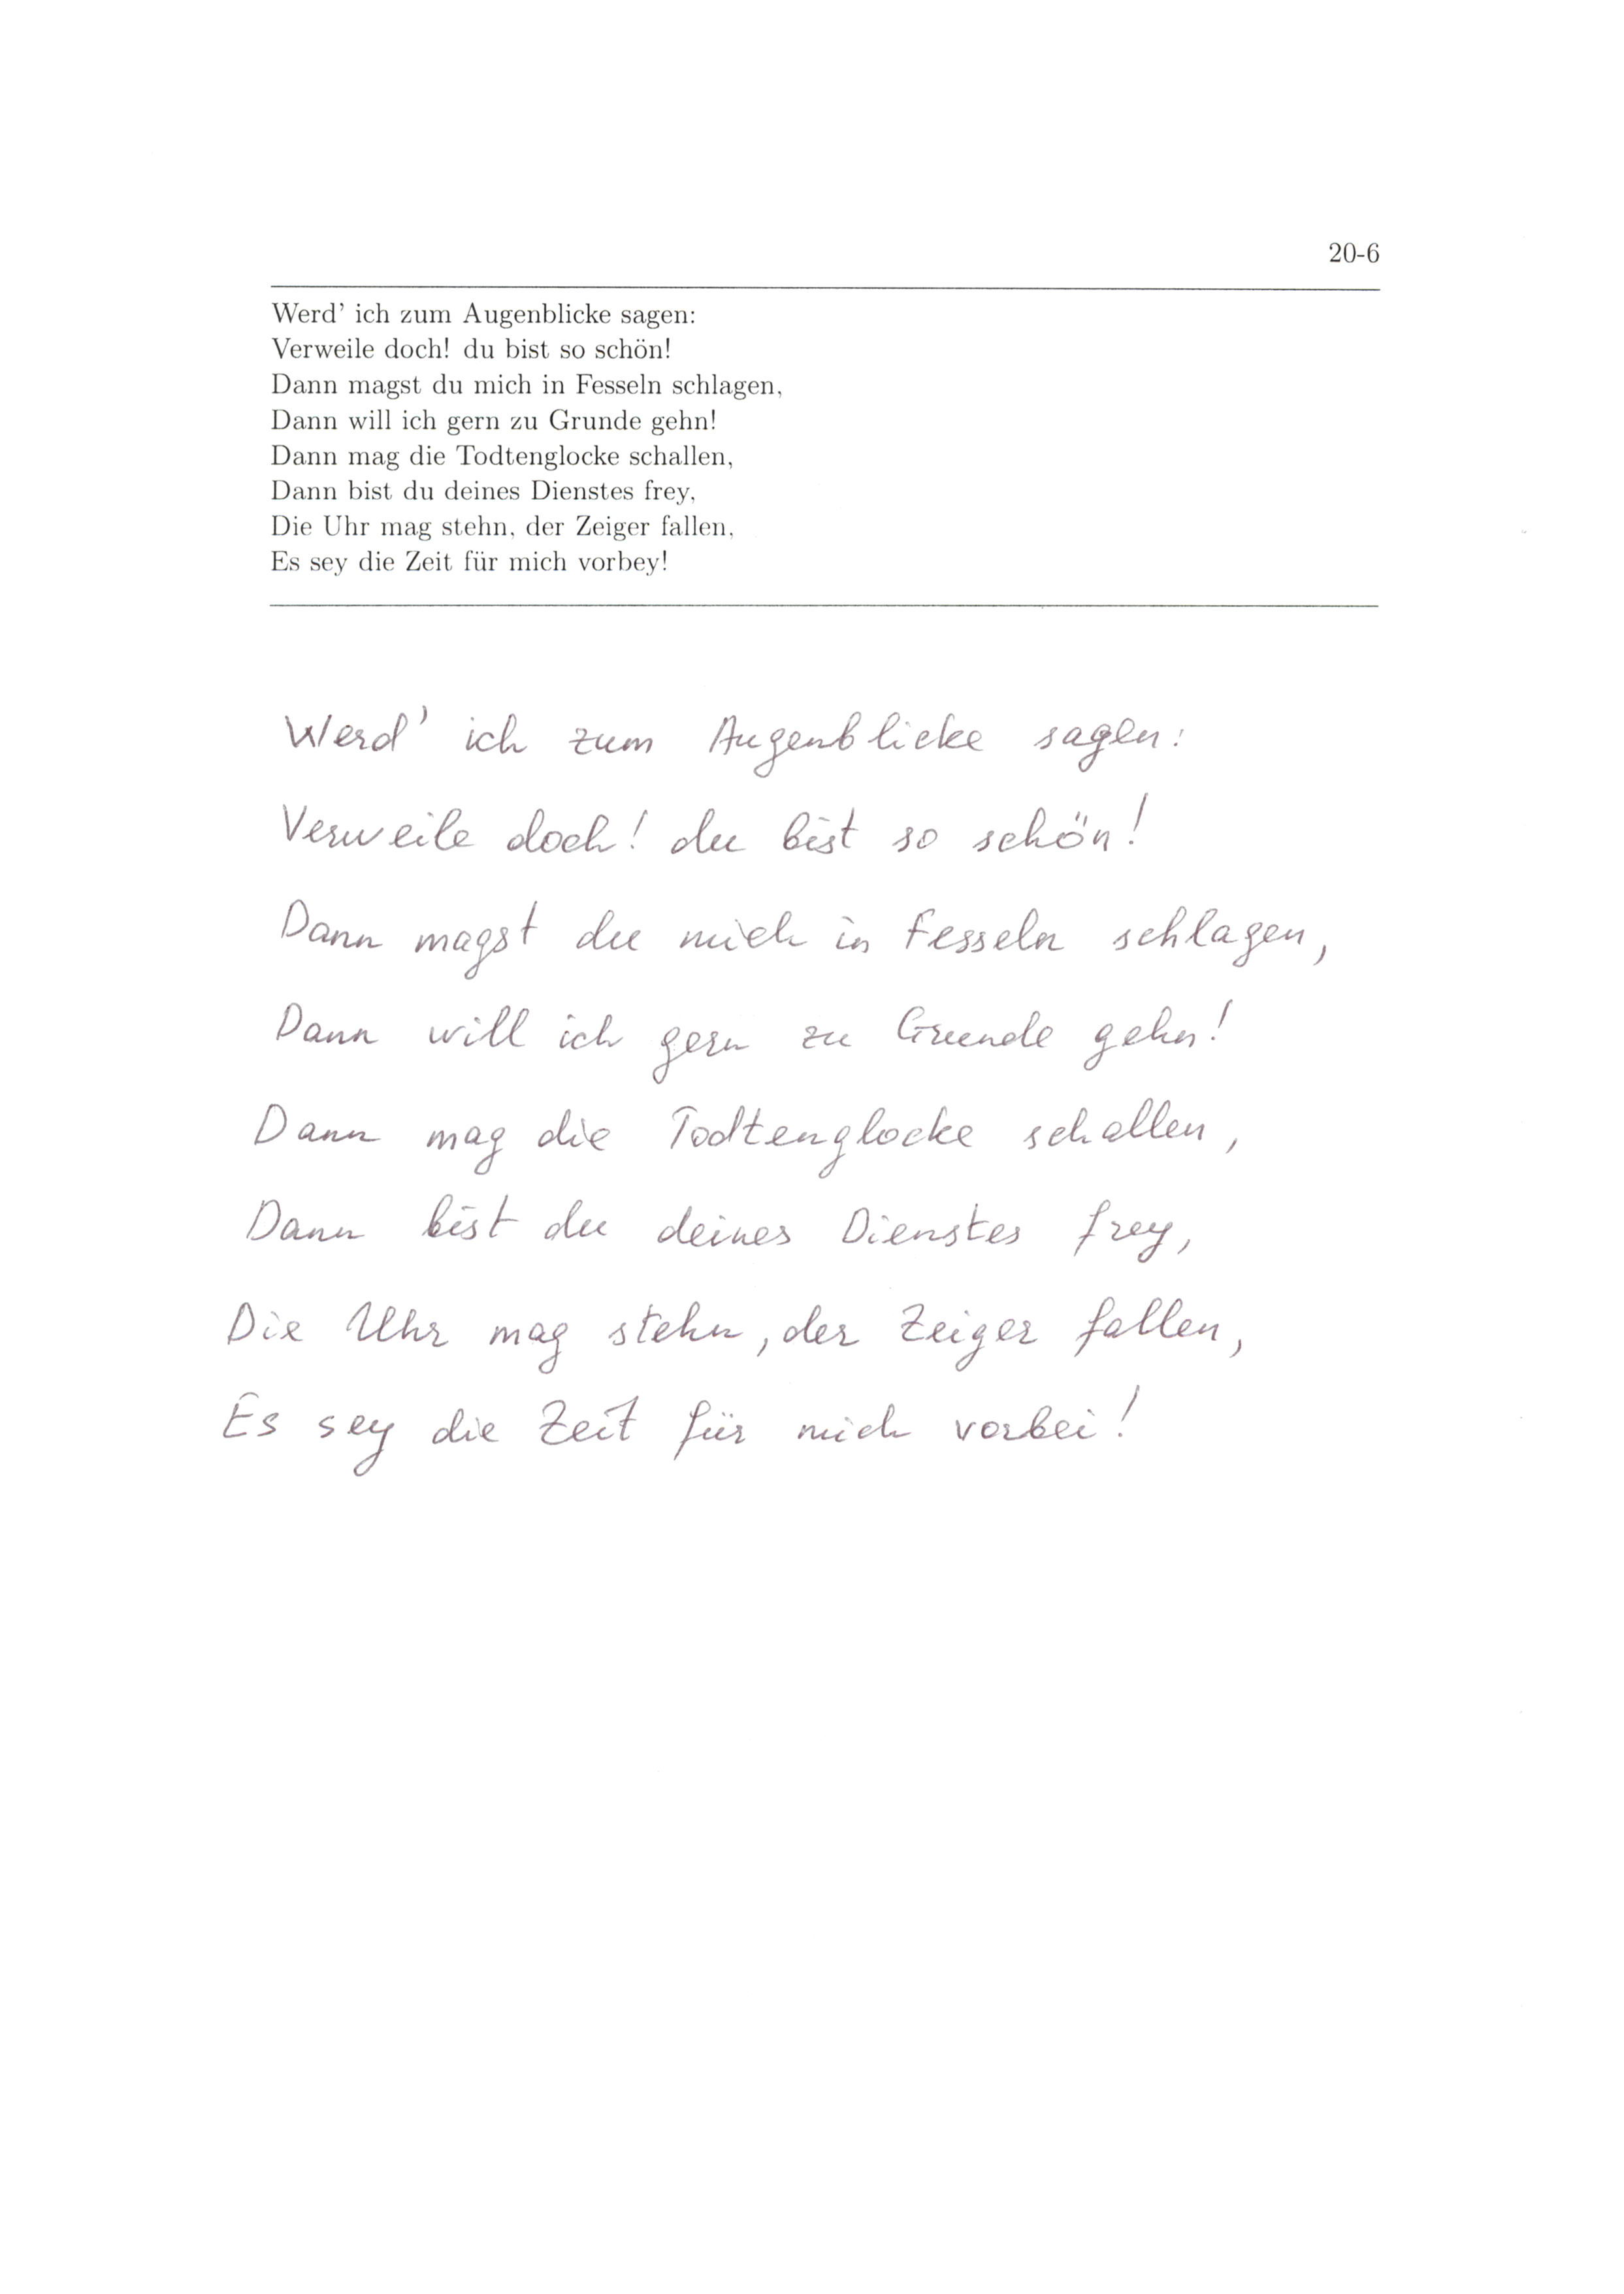 20-6
Werd' ich zum Augenblicke sagen:
Verweile doch! du bist so schön!
Dann magst du mich in Fesseln schlagen,
Dann will ich gern zu Grunde gehn!
Dann mag die Todtenglocke schallen,
Dann bist du deines Dienstes frey,
Die Uhr mag stehn, der Zeiger fallen,
Es sey die Zeit für mich vorbey!
Werd' ich zum Augenblicke sagen:
Verweile doch! du bist so schön!
Dann magst du mich in Fesseln schlagen,
Dann will ich gern zu Grunde gehn!
Dann mag die Todtenglocke schallen,
Dann bist du deines Dienstes frey,
Die Uhr mag stehn, der Zeiger fallen,
Es sey die Zeit für mich vorbei!